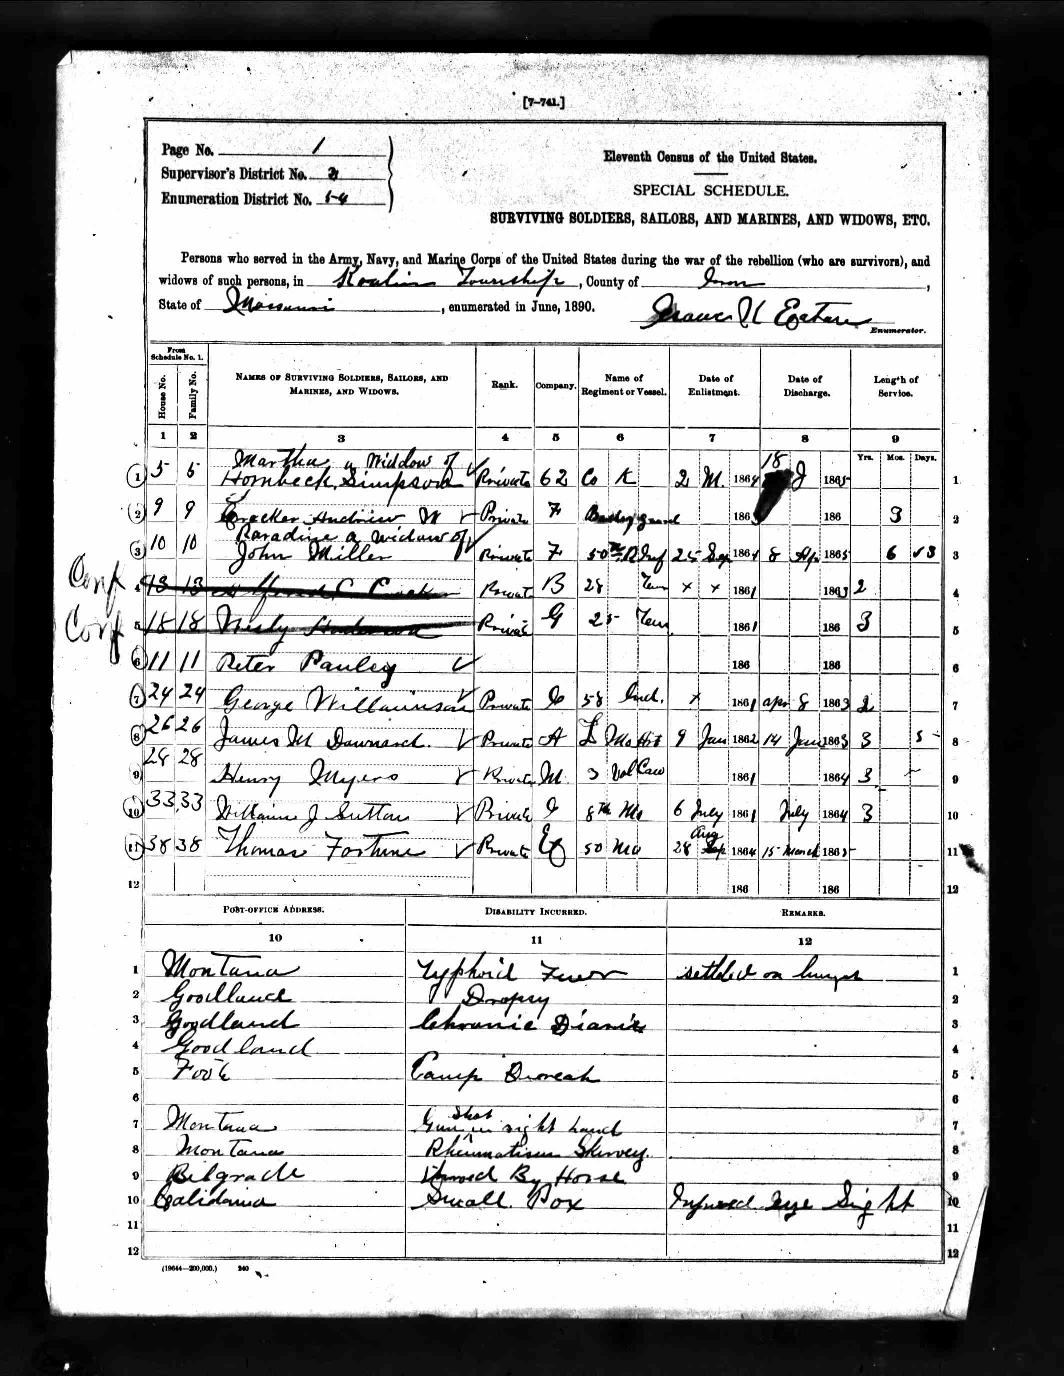 [7-741.]
Page No. 1
Supervisor's District No. 3
Enumeration District No. 54
Eleventh Census of the United States.
SPECIAL SCHEDULE.
SURVIVING SOLDIERS, SAILORS, AND MARINES, AND WIDOWS, ETC.
Persons who served in the Army, Navy, and Marine Corps of the United States during the war of the rebellion (who are survivors), and
widows of such persons, in Township, County of Iron,
State of Missouri, enumerated in June, 1890.
Enumerator.
From Schedule No. 1.
House No. Family No. NAMES OF SURVIVING SOLDIERS, SAILORS, AND MARINES, AND WIDOWS. Rank. Company. Name of Regiment or Vessel. Date of Enlistment. Date of Discharge. Length of Service.
1 2 3 4 5 6 7 8 9
Yrs. Mos. Days.
Martha a Widdow of
1 5 5 Hornbeck, Simpson Private 62 Co K 2 M 1864 18 J 1865 1
2 9 9 Crocker Andrew W Private F 186 186 3 2
Paradine a Widow of
3 10 10 John Miller Private F 50th R Inf 25 Sep 1864 8 Ap 1865 6 13 3
Conf 4 13 13 Private B 28 Ten x x 1861 1863 2 4
Conf 5 18 18 Private G 25 Ten 1861 186 3 5
6 11 11 Peter Pauley 186 186 6
7 24 24 George Williamson Private C 58 Ind. x 1861 apr 8 1863 2 7
8 26 26 James M Downard. Private A Mo 9 Jan 1862 14 Jan 1863 3 5 8
9 28 28 Henry Myers Private M. 3 Vol Cav 1861 1864 3 9
10 33 33 William J Sutton Private C 8th Mo 6 July 1861 July 1864 3 10
Aug
11 38 38 Thomas Fortune Private E 50 Mo 28 Sep 1864 15 March 1865 11
12 186 186 12
POST-OFFICE ADDRESS. DISABILITY INCURRED. REMARKS.
10 11 12
1 Montana Typhoid Fever settled on lungs 1
2 Goodland Dropsy 2
3 Goodland Chronic 3
4 Goodland 4
5 Camp 5
6 6
7 Montana Gun Shot in right hand 7
8 Montana Rheumatism Skirvey. 8
9 Belgrade By Horse 9
10 Calidonia Small Pox Injured eye Sight 10
11 11
12 12
(19644—200,000.) 240